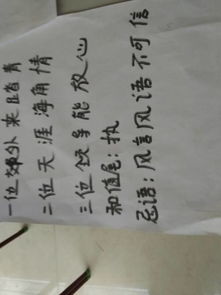 一位郊外来踏青
二位天涯海角情
三位能放心
和值尾:执
语:风言风语不可信